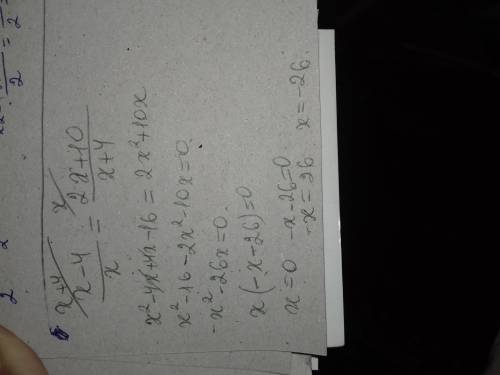 x+4 x
x-4/x = 2x+10/x+4
x²-4x+4x-16 = 2x²+10x
x²-16-2x²-10x=0.
-x²-26x=0.
x(-x-26)=0
x=0 -x-26=0
-x=26 x=-26.